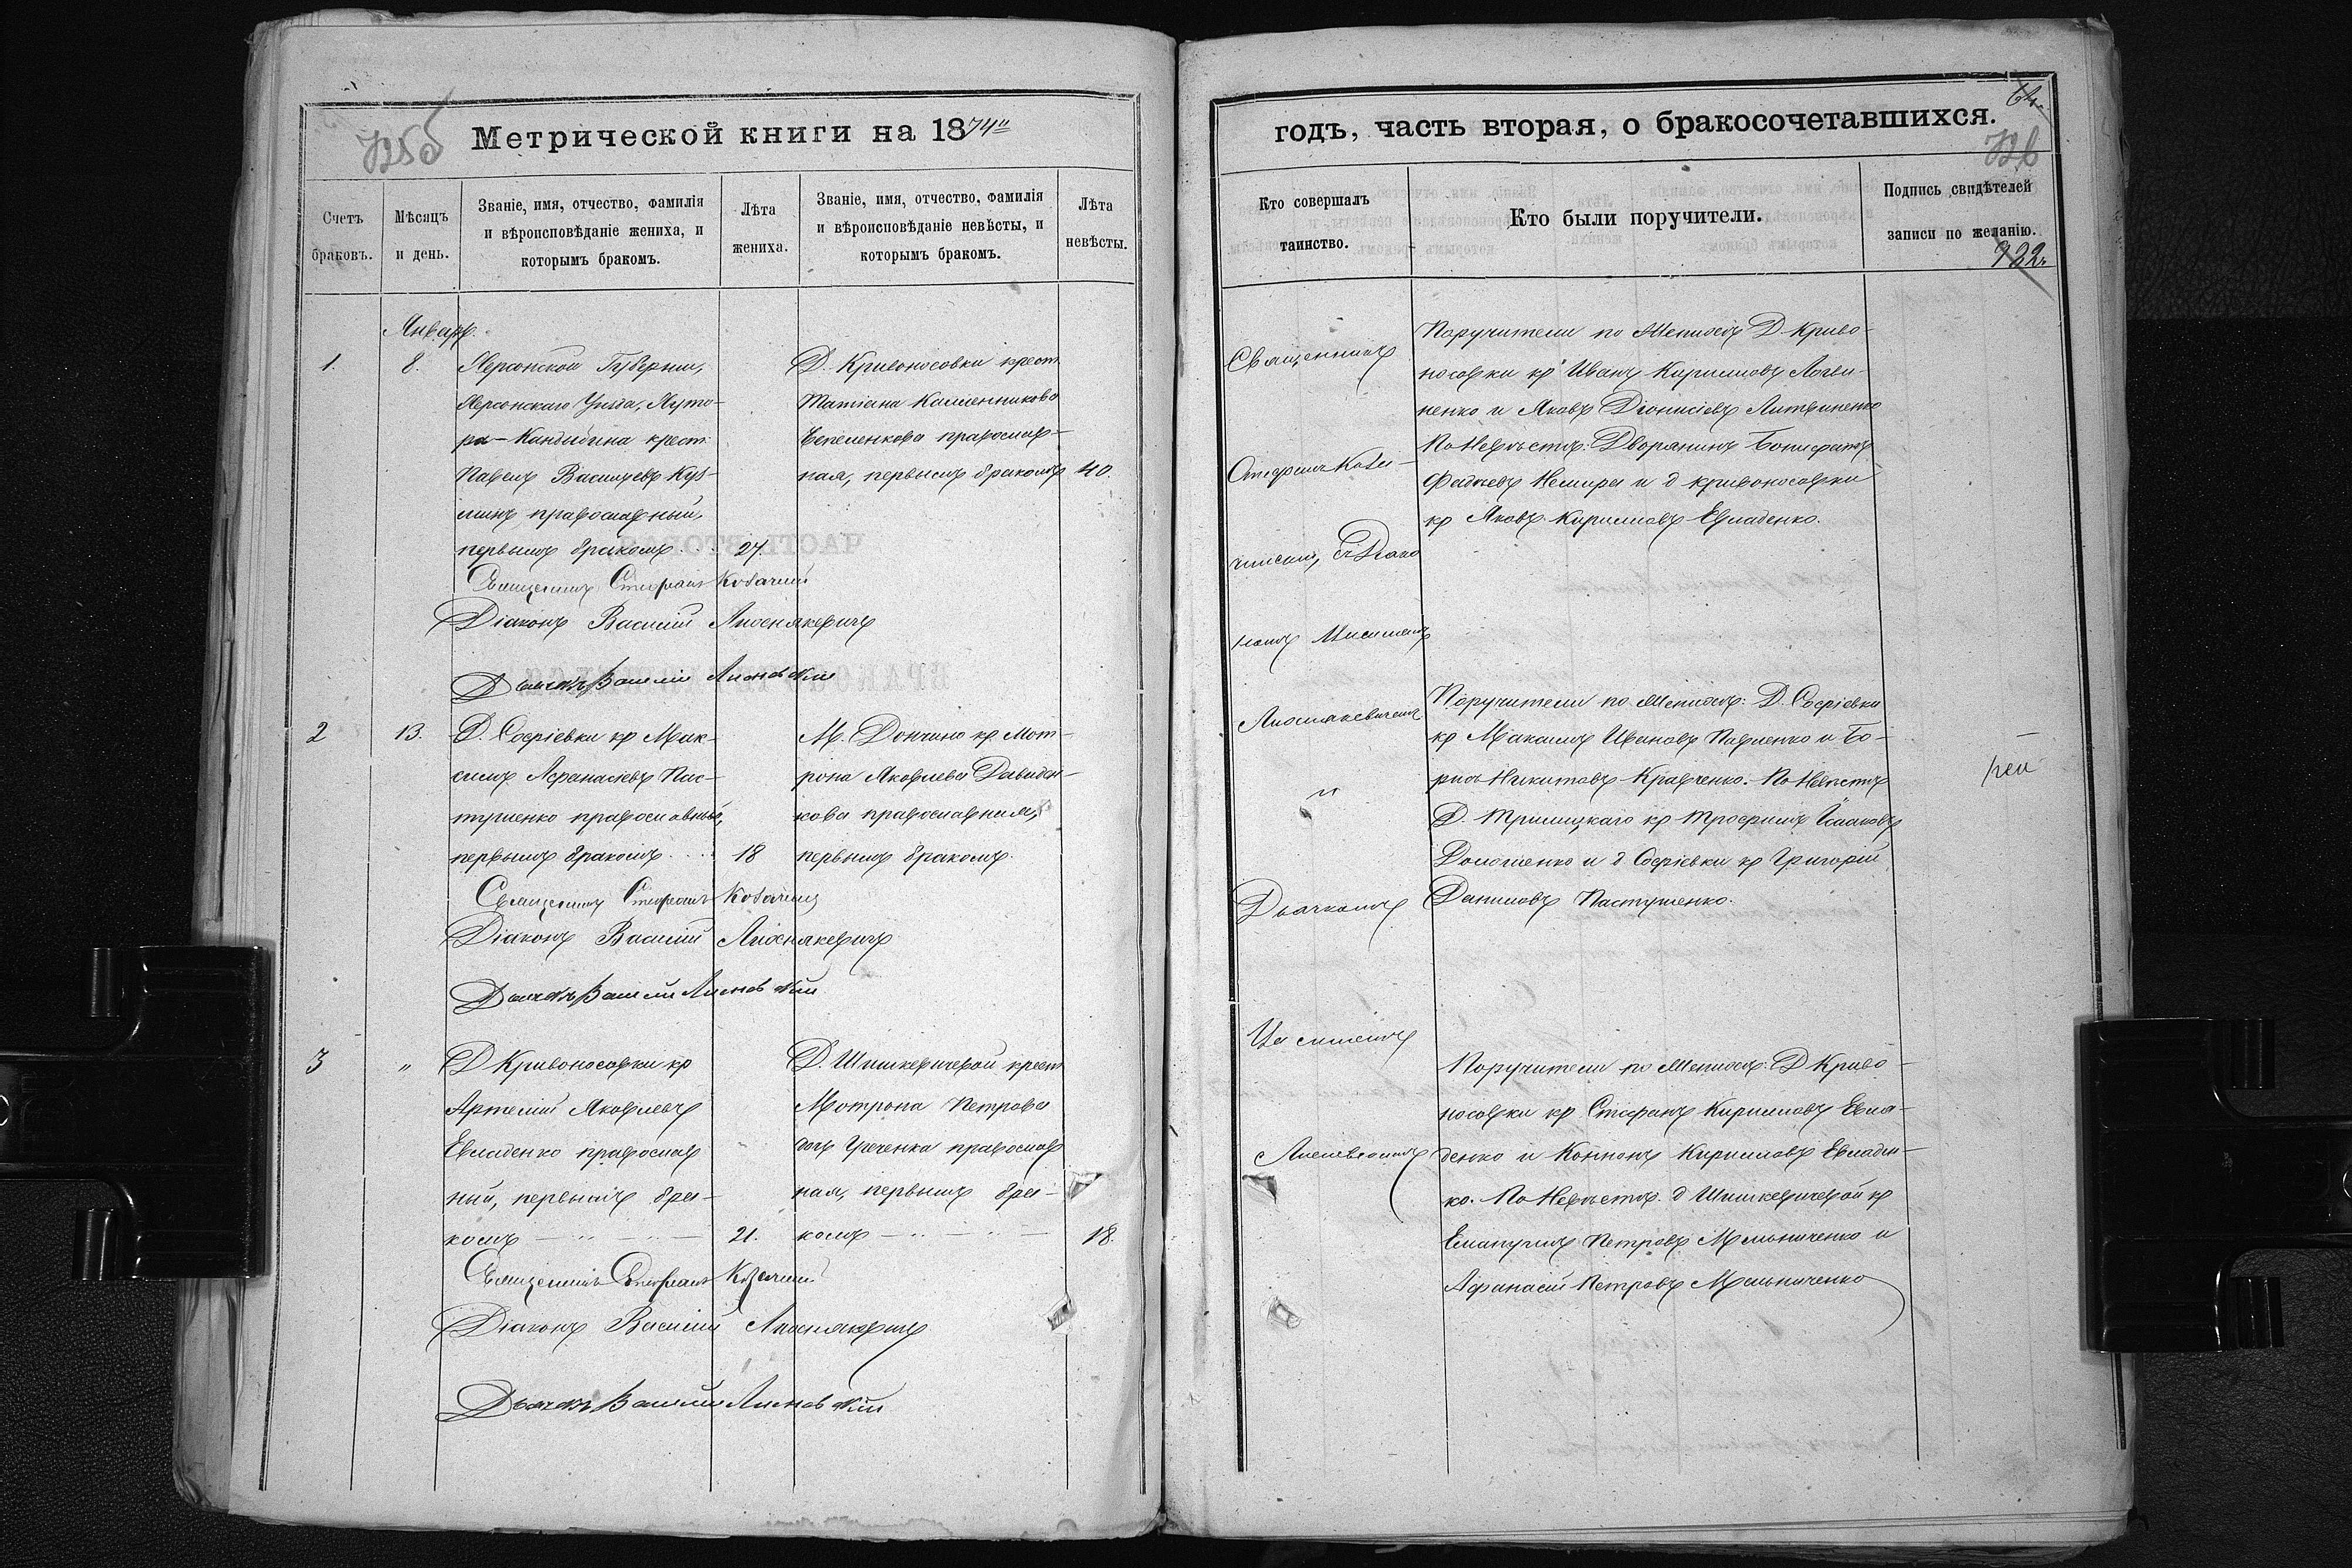 Метрической книги на 1874й
Счетъ браковъ.
Мѣсяцъ и день.
Званіе, имя, отчество, фамилія и вѣроисповѣданіе жениха, и которымъ бракомъ.
Лѣта жениха.
Званіе, имя, отчество, фамилія и вѣроисповѣданіе невѣсты, и которымъ бракомъ.
Лѣта невѣсты.
Январь.
1.
8.
Херсонской Губерніи,
Херсонскаго Уѣзда, Хуто-
ра-Кандыбина крест.
Павелъ Васильевъ Куз-
минъ православный,
первымъ бракомъ
27.
Д. Кривоносовки крест
Татіана Калленникова
православ-
ная, первымъ бракомъ
40.
Священникъ Стефанъ Козачинскій
Діаконъ Василій
Дьячекъ Василій
2
13.
Д. Софіевки кр Мак-
симъ Афанасіевъ Пас-
тушенко православный,
первымъ бракомъ
18
М. Дончино кр. Мот-
рона Яковлева Давиден-
кова православная,
первымъ бракомъ.
Священникъ Стефанъ
Діаконъ Василій
Дьячекъ Василій
3
"
Д Кривоносовки кр
Артемій Яковлевъ
Евладенко православ
ный, первымъ бра-
комъ
21.
Д. Шишкевичевой крест
Мотрона Петрова
дочь православ
ная, первымъ бра-
комъ
18.
Священникъ Стефанъ
Діаконъ Василій
Дьячекъ Василій
годъ, часть вторая, о бракосочетавшихся.
Кто совершалъ таинство.
Кто были поручители.
Подпись свидѣтелей записи по желанію.
Священникъ
Стефанъ Коза-
чинскій, съ Діако
номъ Василіемъ
и
Дьячкомъ
Василіемъ
Поручители по Женихѣ Д. Криво-
носовки кр Иванъ Кирилловъ Логви-
ненко и Яковъ Діонисіевъ Литвиненко
По Невѣстѣ: Дворянинъ Бонифатій
Фадѣевъ Немира и д кривоносовки
кр Яковъ Кирилловъ Евладенко.
Поручители по Женихѣ: Д. Софіевки
кр Максимъ Ивановъ Павленко и Бо-
рисъ Никитовъ Кравченко. По Невѣстѣ
Д. Троицкаго кр Трофимъ Исааковъ
и д Софіевки кр Григорій
Даниловъ Пастушенко.
Поручители по Женихѣ: Д Криво-
носовки кр Стефанъ Кирилловъ Евла-
денко и Кононъ Кирилловъ Евладен-
ко. По Невѣстѣ д Шишкевичевой кр
Емануилъ Петровъ Мельниченко и
Афанасій Петровъ Мельниченко